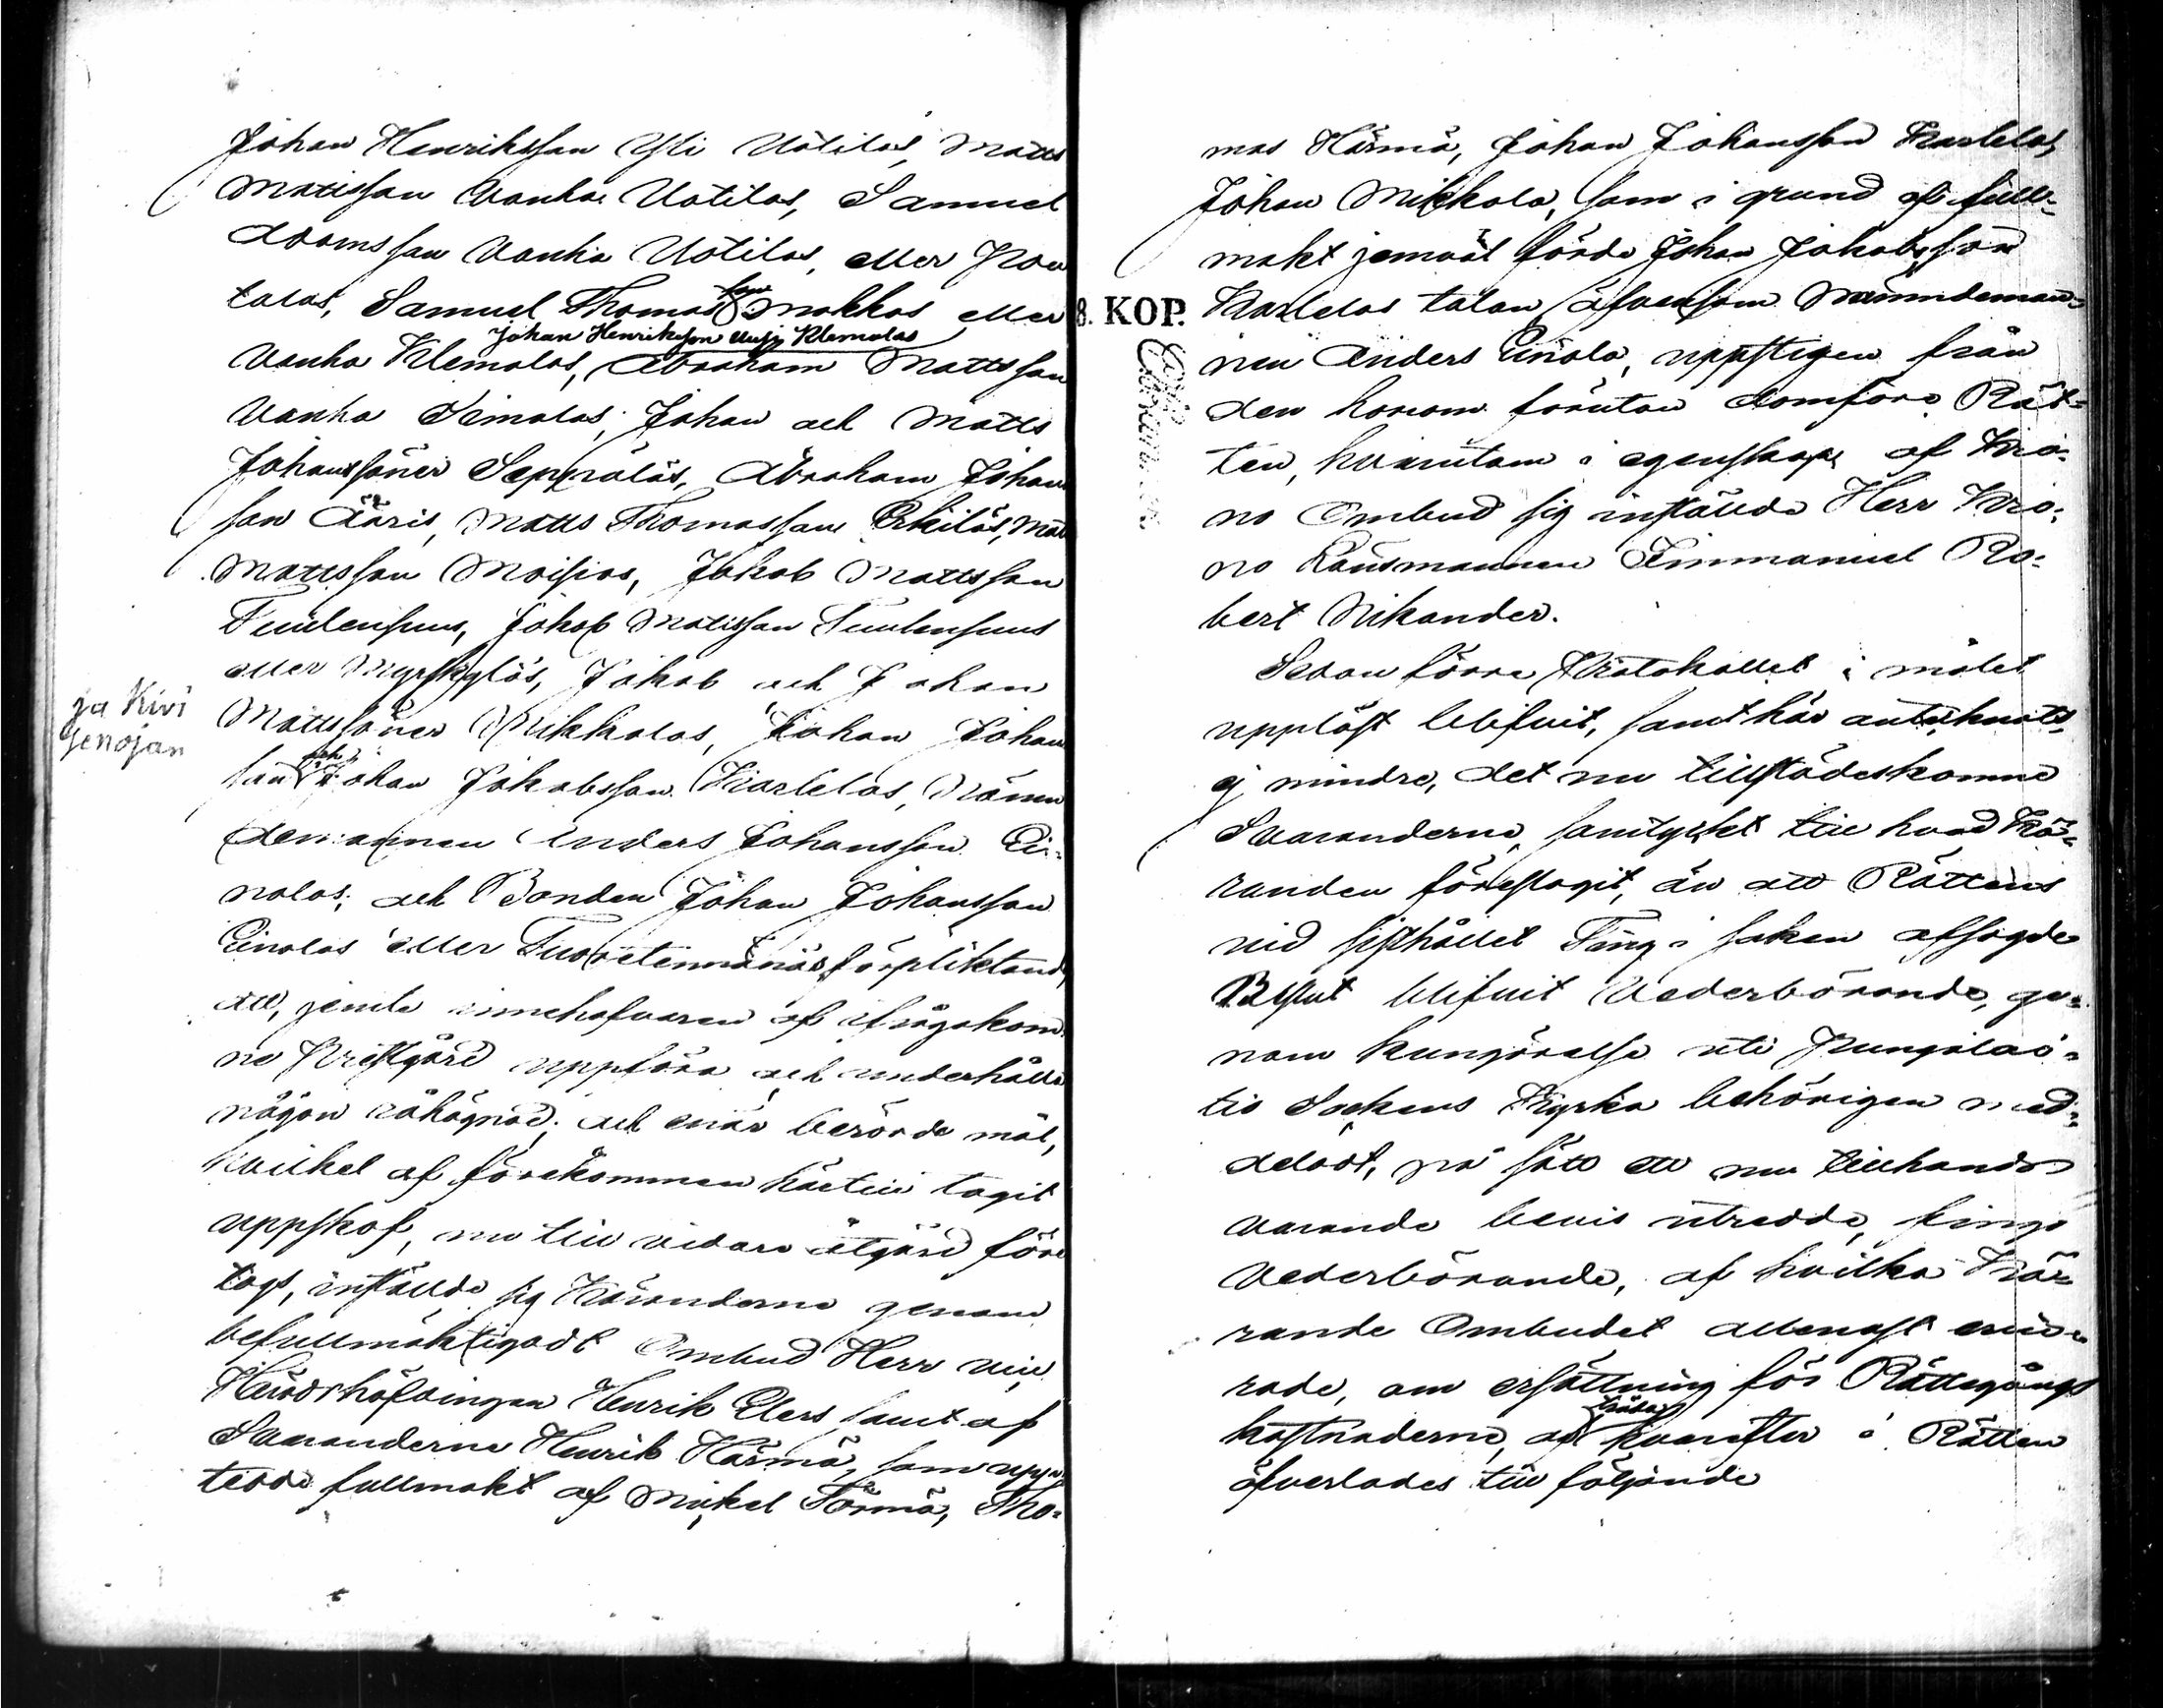 Johan Henriksson Yli Uotilas, Matts
Mattsson Vanha Uotilas, Samuel
Adamsson Vanha Uotilas, eller Rau
talas, Samuel Thomasson Mokkas eller
Johan Henriksson Uusi Klemolas
Vanha Klemolas, Abraham Mattsson
Vanha Seimolas, Johan och Matts
Johanssöner Seppäläs, Abraham Johans
son Ääris, Matts Thomasson Erkiläs, Matts
Mattsson Moisios, Jakob Mattsson
Tuulensuus, Jakob Mattsson Tuulensuus
eller Myrskyläs, Jakob och Johan
ja Kivi
jenojan
Mattssöner Mikkolas, Johan Johans
son och Johan Jakobsson Karlelas, Nämn
demannen Anders Johansson Ei-
nolas; och Bonden Johan Johansson
Einolas eller Tuoretenmäkis förpliktande
att, jemte innehafvaren af ifrågakom
ne Prestgård uppföra och underhålla
någon råhägnad, och enär berörde mål,
hvilket af förekommen hästeu tagit
uppskof, nu till vidare åtgärd före
togs, inställde sig Käranderne genom
befullmäktigadt Ombud Herr vice
Häradshöfdingen Henrik Elers samt af
Svaranderne Henrik Härmä, som upp-
tedde fullmakt af Mickel Törmä, Tho-
mas Härmä, Johan Johansson Karlelas,
Johan Mikkola, som i grund af full-
makt jemväl förde Johan Jakobsson
8. KOP.
Karlelas talan, äfvensom Nämndeman-
nen Anders Einola, uppstigen från
den honom förutan domföra Rät-
ten, hvarutom i egenskap af Kro-
no Ombud sig inställde Herr Kro-
no Länsmannen Immanuel Ro-
bert Nikander.
Sedan förra Protokollet i målet
uppläst blifvit, samt här antecknats,
ej mindre, det nu tillstädeskomne
Svaranderne, samtyckt till hvad Kä-
randen föreslagit, än att Rättens
vid sisthållet Ting i saken afsagde
Beslut blifvit Vederbörande, ge-
nom kungörelse uti Pungalai-
tio Sockens Kyrka behörigen med-
deladt, på sätt ett nu tillhanda
varande bevis utredde, fingo
Vederbörande, af hvilka Kä-
rande Ombudet allenast erin-
rade, om ersättning för Rättegångs
kostnaderne, afträda, hvarefter i Rätten
öfverlades till följande